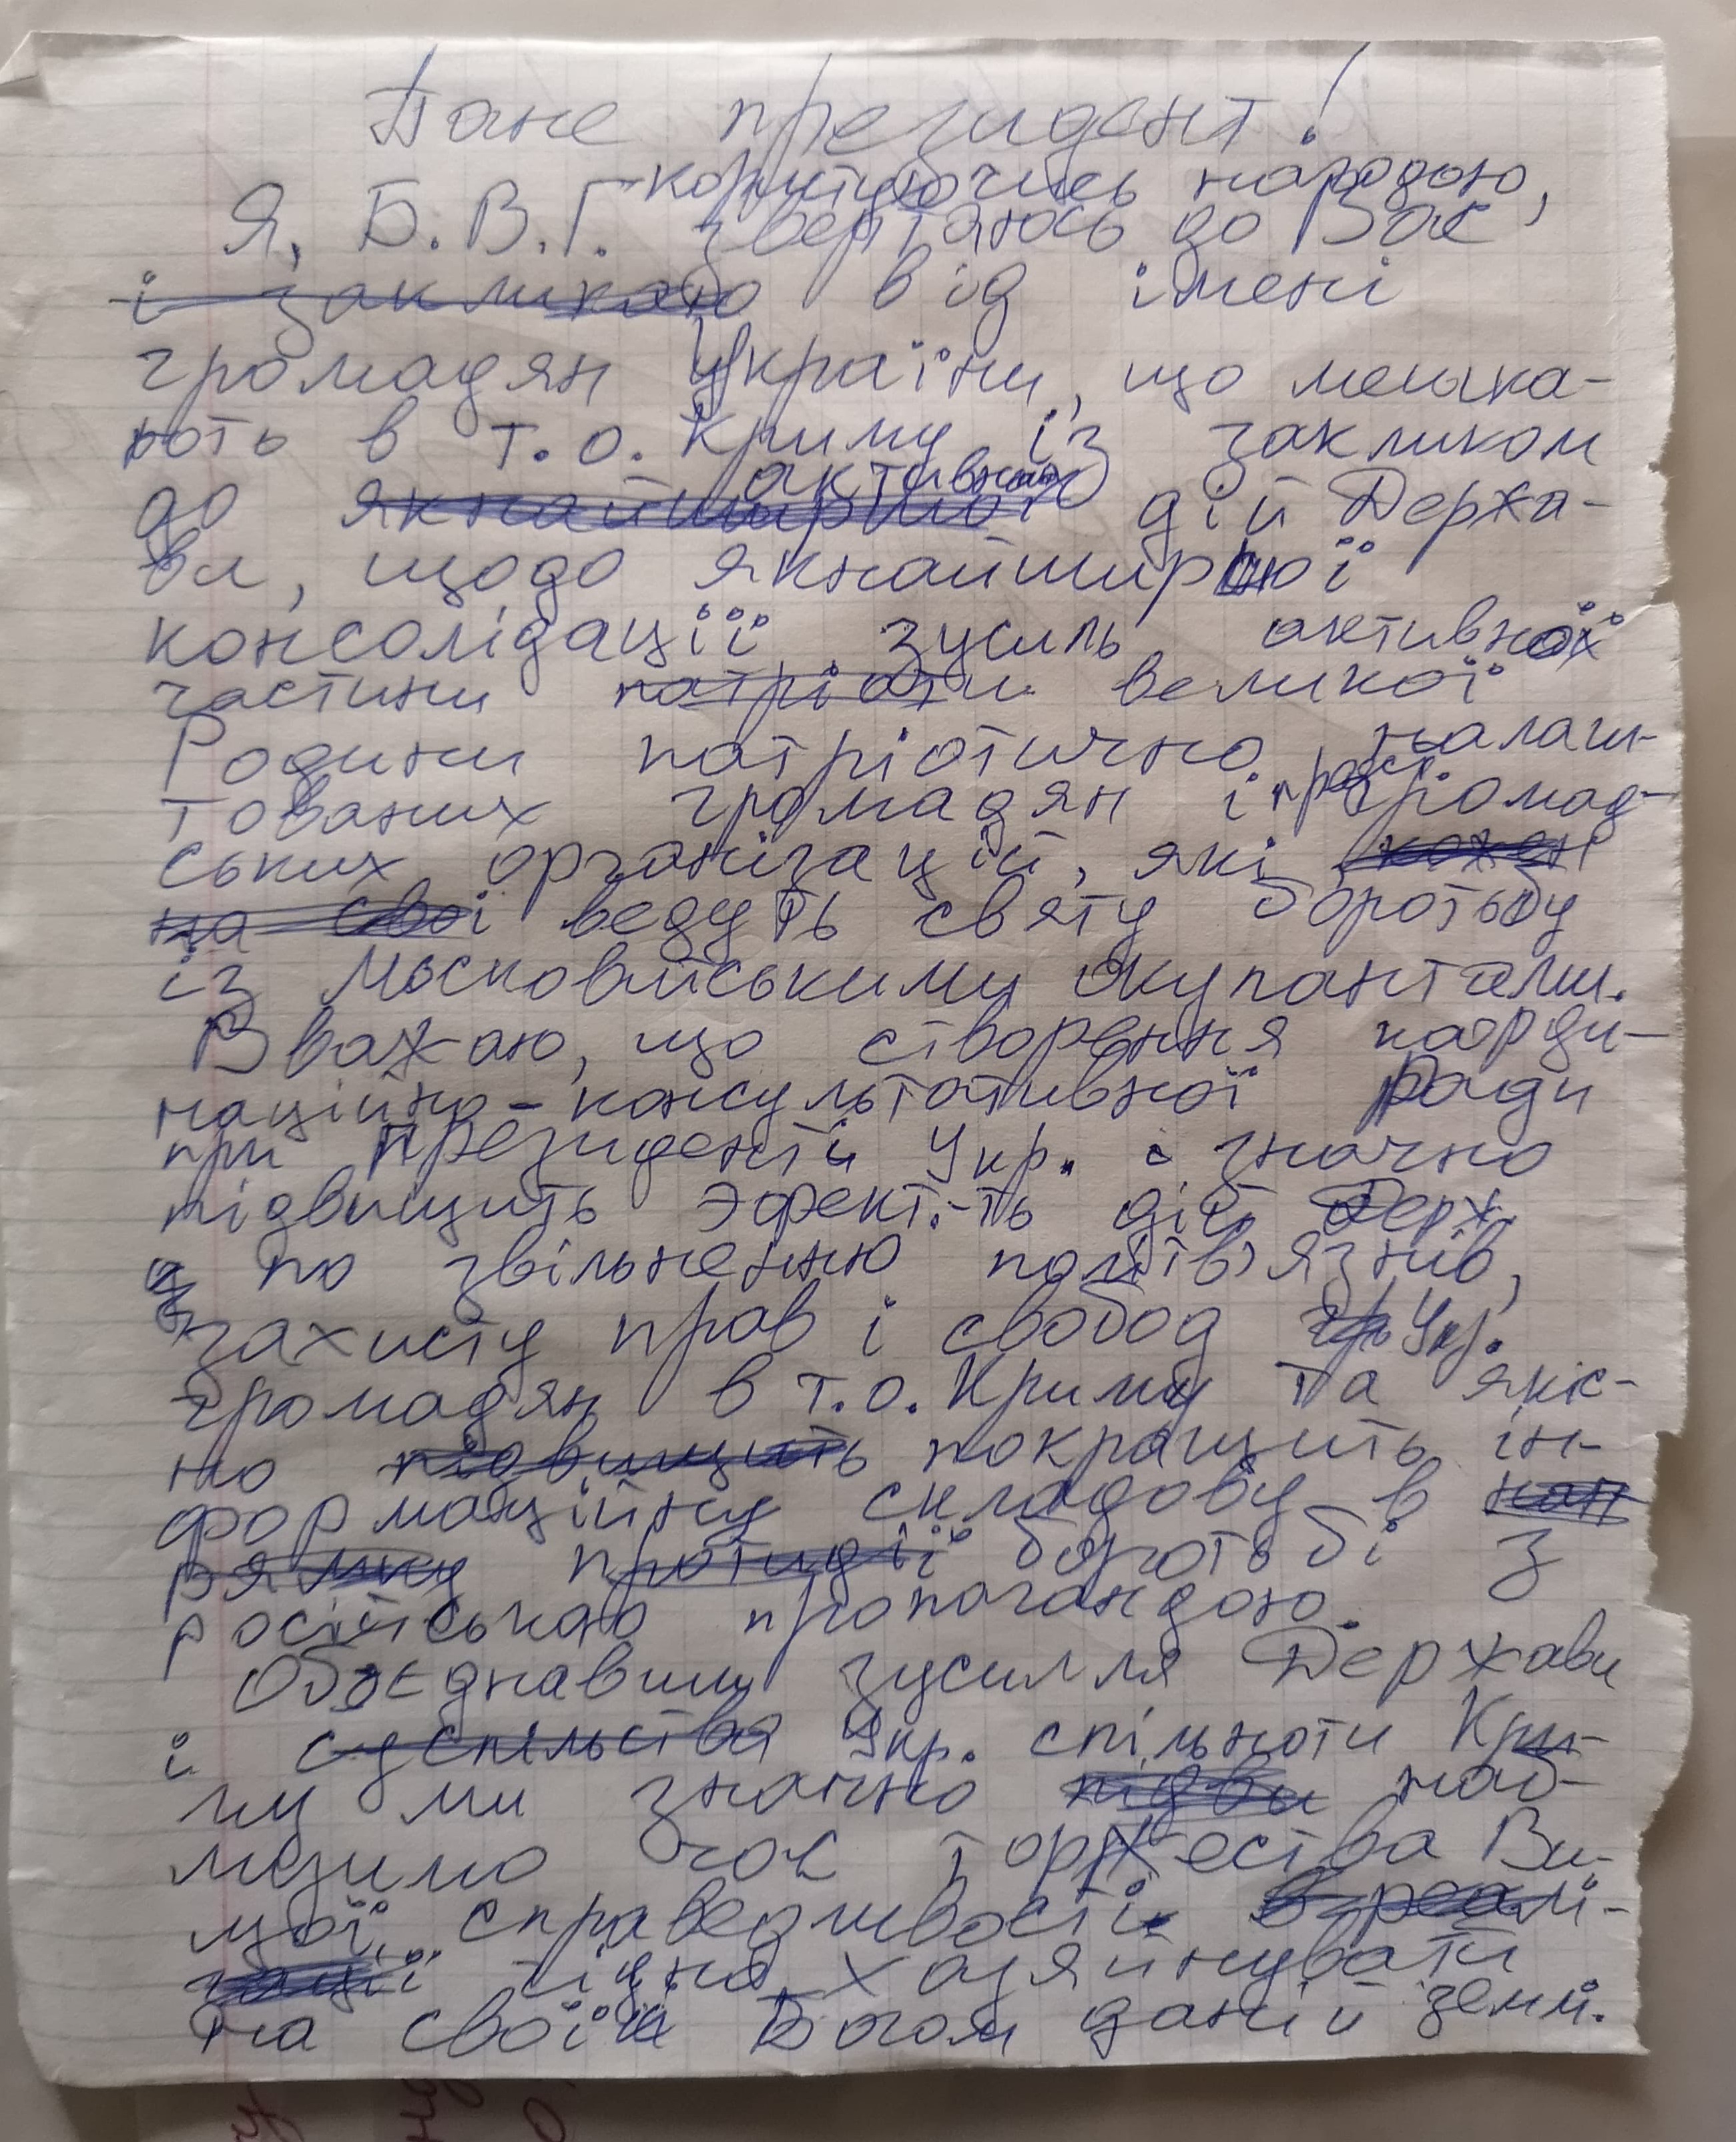 Пане президент!
користуючись нагодою,
Я, Б.В.Г. звертаюсь до Вас
і закликаю від імені
громадян України, що мешка-
ють в т.о. Криму із закликом
активних
до якнайширшої дій Держа-
ви, щодо якнайширшої
консолідації зусиль активної
частини патріоти великої
Родини патріотично налаш-
тованих громадян і громад-
ських організацій, які кожен
на свої ведуть святу боротьбу
із московитськими окупантами.
Вважаю, що створення коорди-
наційно-консультативної ради
при президенті Укр. значно
підвищить эфект.-ть дій Держ.
по звільненню політв'язнів,
захисту прав і свобод Укр.
громадян в т.о. Криму та якіс-
но підвищить покращить ін-
формаційну складову в нап
рямку протидії боротьбі з
російською пропогандою.
Об'єднавши зусилля Держави
і суспільства Укр. спільноти Кри-
му ми значно підви наб-
лизимо час торжества Ви-
щої справедливості в реалі-
зації гідно хазяйнувати
на своїй Богом даній землі.